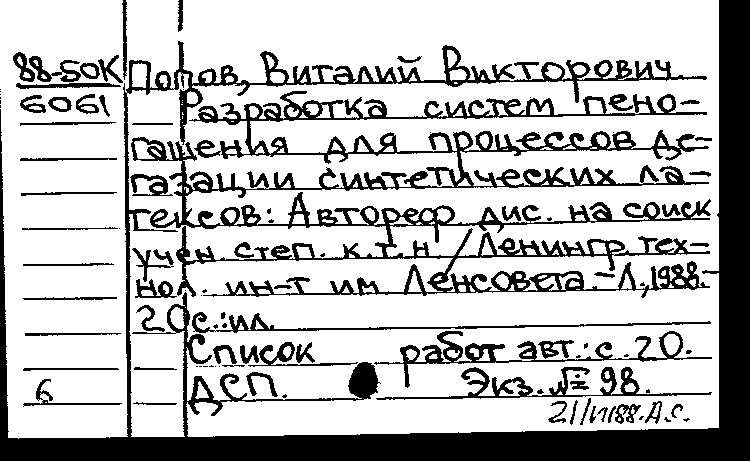 88-50К Попов, Виталий Викторович
6061 Разработка систем пено-
гашения для процессов де-
газации синтетических ла-
тексов: Автореф. дис. на соиск.
учен. степ. к.т.н. / Ленингр. тех-
нол. ин-т им Ленсовета. - Л., 1988. -
20с.:ил.
Список работ авт.: с. 20.
6 ДСП. Экз. № 98.